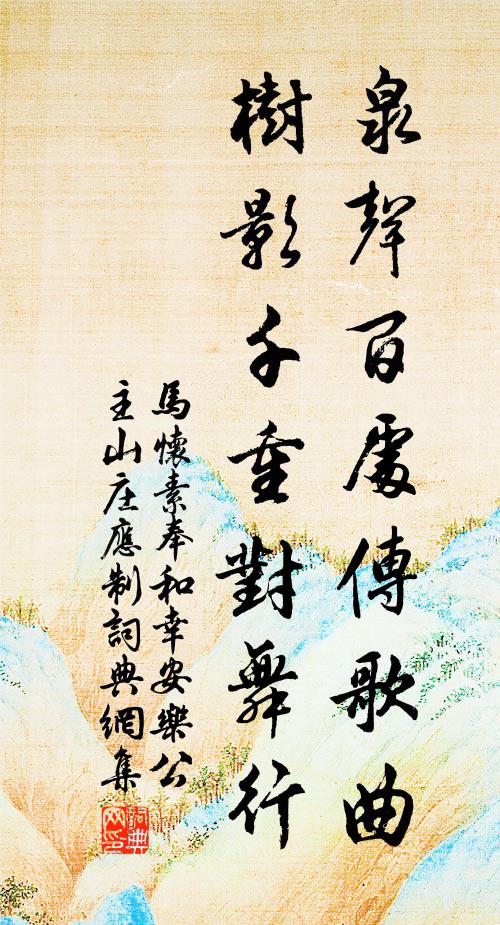 泉聲百處傳歌曲
樹影千重對舞行
馬懷素奉和幸安樂公
主山庄應制詞典網集
詞典
网印